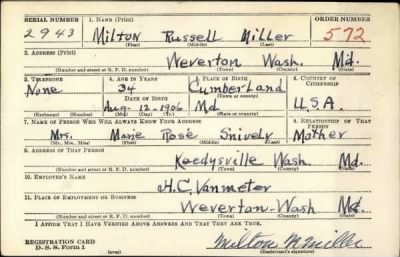 SERIAL NUMBER 1. NAME (Print) ORDER NUMBER
2943 Milton Russell Miller 572
(First) (Middle) (Last)
2. ADDRESS (Print)
Weverton Wash. Md.
(Number and street or R. F. D. number) (Town) (County) (State)
3. TELEPHONE 4. AGE IN YEARS 5. PLACE OF BIRTH 6. COUNTRY OF CITIZENSHIP
None 34 Cumberland
DATE OF BIRTH (Town or county)
Aug. 12, 1906 Md U.S.A.
(Exchange) (Number) (Mo.) (Day) (Yr.) (State or country)
7. NAME OF PERSON WHO WILL ALWAYS KNOW YOUR ADDRESS 8. RELATIONSHIP OF THAT PERSON
Mrs. Marie Rose Snively Mother
(Mr., Mrs., Miss) (First) (Middle) (Last)
9. ADDRESS OF THAT PERSON
Keedysville Wash. Md.
(Number and street or R. F. D. number) (Town) (County) (State)
10. EMPLOYER'S NAME
H.C. Vanmeter
11. PLACE OF EMPLOYMENT OR BUSINESS
Weverton-Wash Md.
(Number and street or R. F. D. number) (Town) (County) (State)
I AFFIRM THAT I HAVE VERIFIED ABOVE ANSWERS AND THAT THEY ARE TRUE.
REGISTRATION CARD
D. S. S. Form 1 (over) Milton M. Miller
(Registrant's signature)